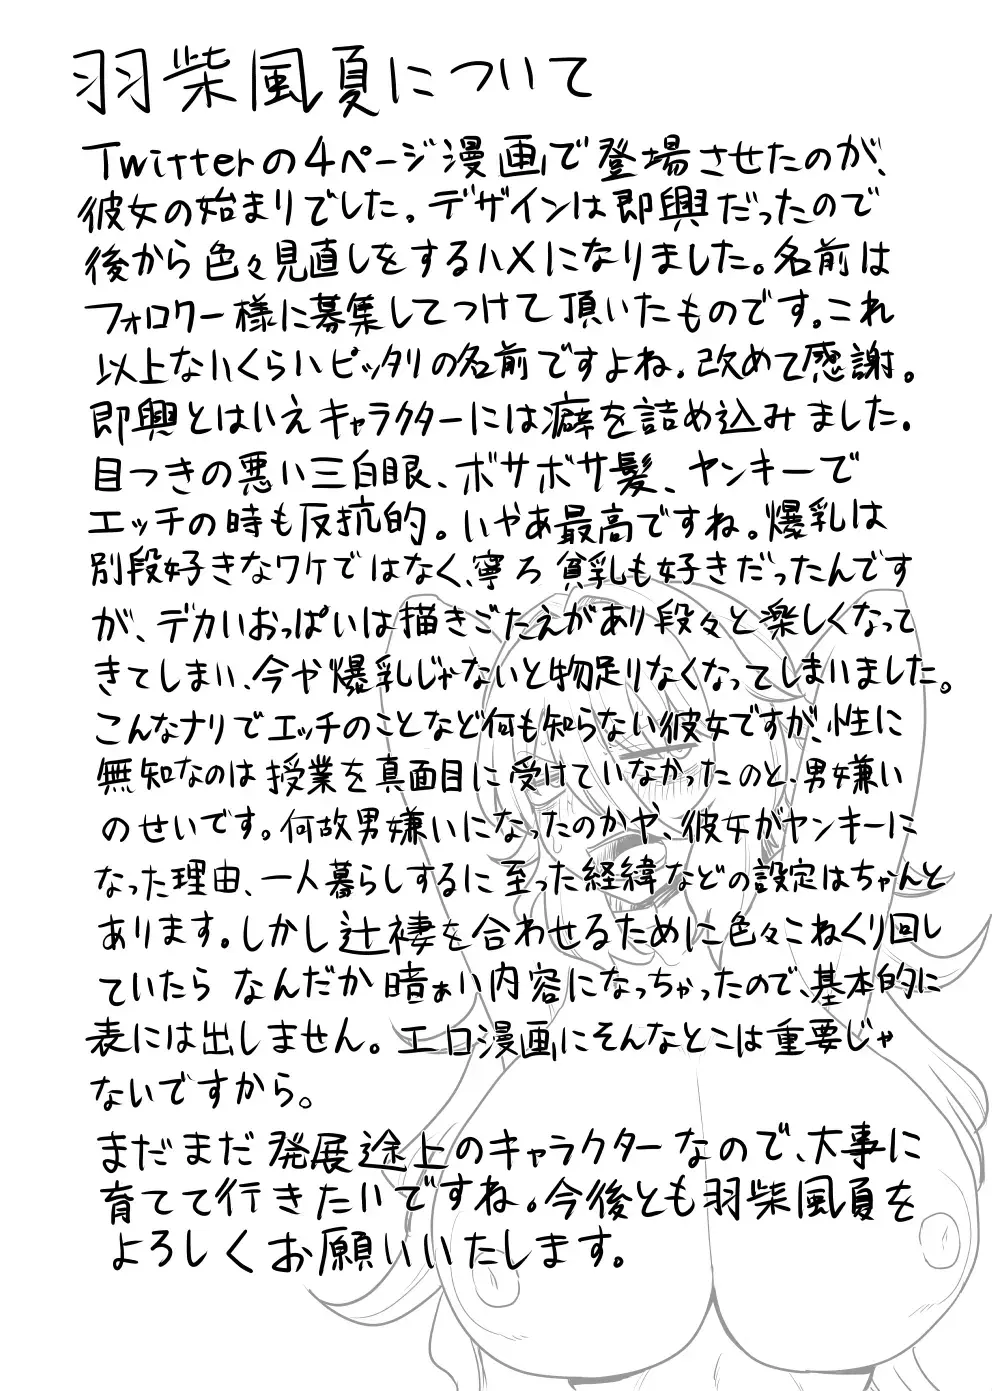 羽柴風夏について
Twitterの4ページ漫画で登場させたのが、
彼女の始まりでした。デザインは即興だったので
後から色々見直しをするハメになりました。名前は
フォロワー様に募集してつけて頂いたものです。これ
以上ないくらいピッタリの名前ですよね。改めて感謝。
即興とはいえキャラクターには癖を詰め込みました。
目つきの悪い三白眼、ボサボサ髪、ヤンキーで
エッチの時も反抗的。いやぁ最高ですね。爆乳は
別段好きなワケではなく、寧ろ貧乳も好きだったんです
が、デカいおっぱいは描きごたえがあり段々と楽しくなって
きてしまい、今や爆乳じゃないと物足りなくなってしまいました。
こんなナリでエッチのことなど何も知らない彼女ですが、性に
無知なのは授業を真面目に受けていなかったのと、男嫌い
のせいです。何故男嫌いになったのかや、彼女がヤンキーに
なった理由、一人暮らしするに至った経緯などの設定はちゃんと
あります。しかし辻褄を合わせるために色々こねくり回し
ていたらなんだか暗ぁい内容になっちゃったので、基本的に
表には出しません。エロ漫画にそんなとこは重要じゃ
ないですから。
まだまだ発展途上のキャラクターなので、大事に
育てて行きたいですね。今後とも羽柴風夏を
よろしくお願いいたします。